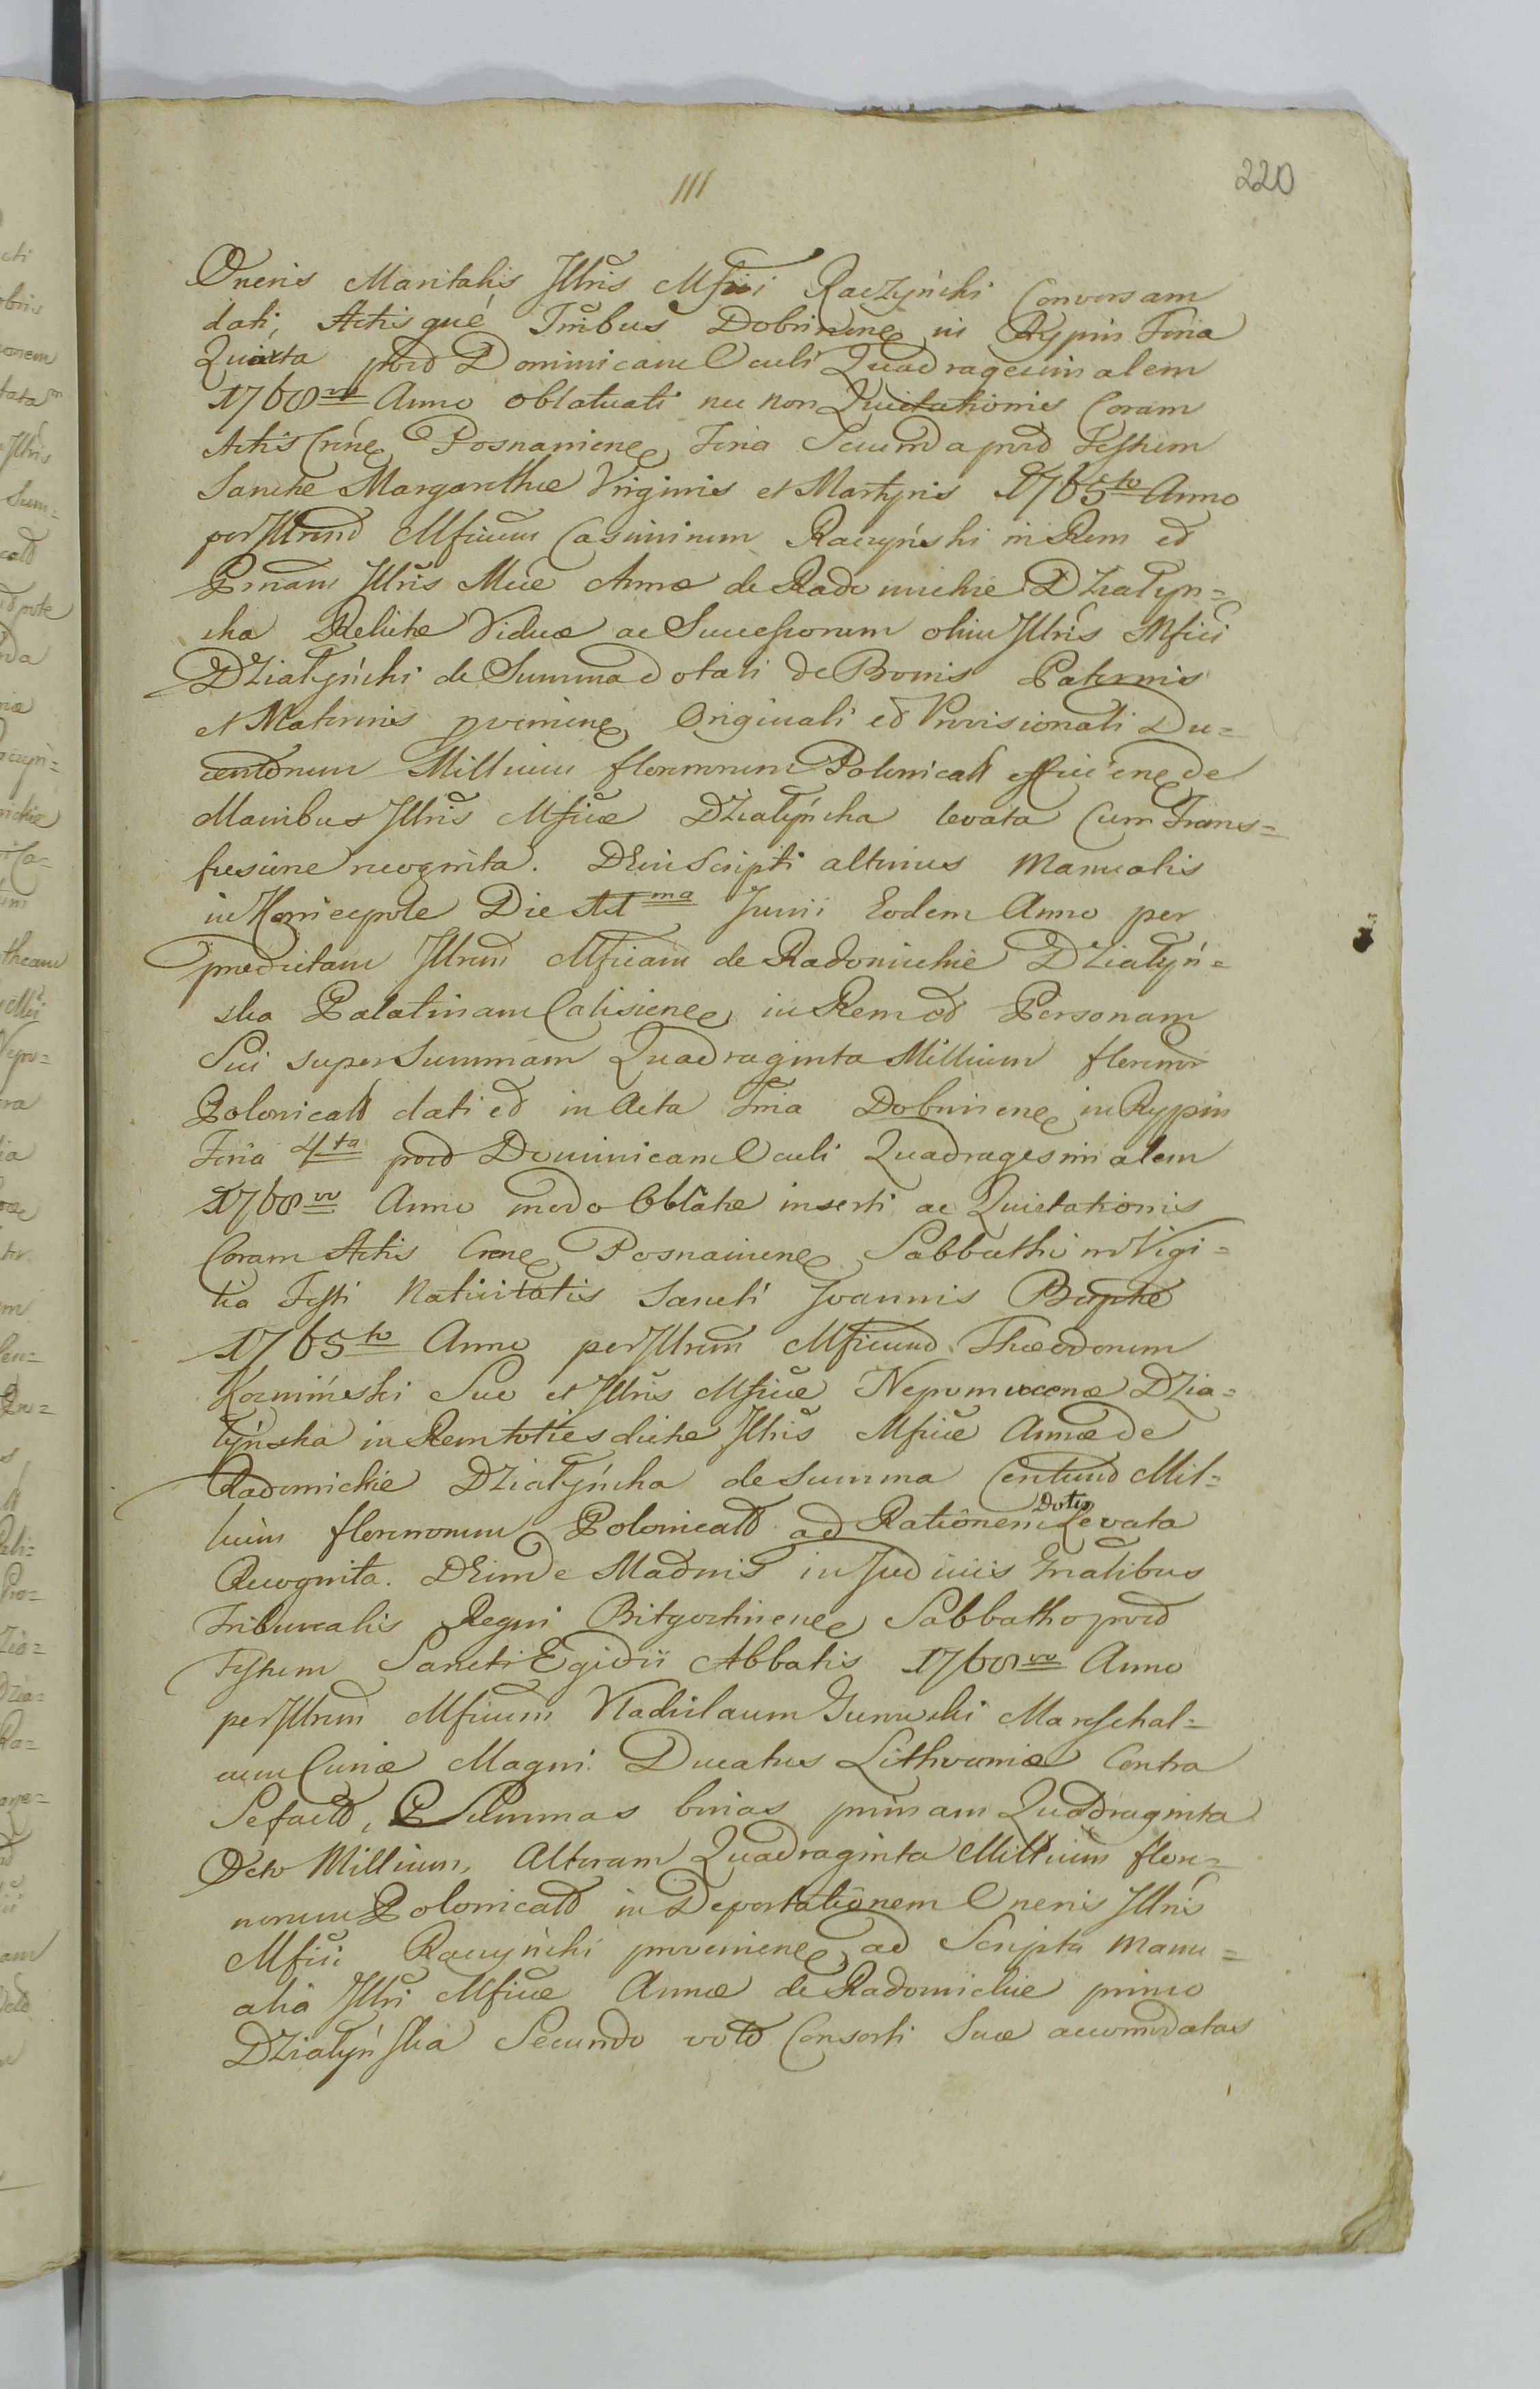 111
220
Oneris Maritalis Jllris Mfici Raczyński Conversam
dati, Actis qué Trribus Dobrinene in Rypin Feria
Quarta post Dominicam Oculi Quadragesimalem
1768vo Anno oblatuati nec non Quietationis Coram
Actis Crene Posnaniene Feria Secunda post Festum
Sanctæ Margarethæ Virginis et Martyris 1765to Anno
per Jllrem Mficum Casimirum Raczyński in Rem et
Psnam Jllris Mcæ Annæ de Radomickie Dżiałyn=
ska Relictæ Viduæ ac Successorum olim Jllris Mfici
Dżiałyński de Summa dotali de Bonis Paternis
et Maternis proviene Originali et Provisionali Du=
centorum Millium florenorum Polonicall efficiene de
Manibus Jllris Mficæ Dżiałyńska levata Cum Trans=
fusione recognita. DEin Scripti alterius Manualis
in Die Junii Eodem Anno per
prædictam Jllrem Mficam de Radomickie Dżiałyń=
ska Palatinam Calisiene in Rem et Personam
Sui super Summam Quadraginta Millium florenor
Polonicall dati et in Acta Trria Dobrinene in Rypin
Feria 4ta post Dominicam Oculi Quadragesimalem
1768vo Anno modo Oblatæ inserti ac Quietationis
Coram Actis Crene Posnaniene Sabbathi in Vigi=
lia Festi Nativitatis Sancti Joannis Baptæ
1765to Anno per Jllrem Mficum Theodorum
Kozmiński Suo et Jllris Mficæ Nepomucenæ Dżia=
łyńska in Rem toties dictæ Jllris Mficæ Annæ de
Radomickie Dżiałyńska de Summa Centum Mil=
lium florenorum Polonicall ad Rationem Dotis Levata
Recognita. DEinde Madnis in Judiciis Gnalibus
Tribunalis Regni Bitgostiene Sabbatho post
Festum Sancti Egidii Abbatis 1768vo Anno
per Jllrem Mficum Vladislaum Gurowski Marschal=
cum Curiæ Magni Ducatus Lithvaniæ Contra
Se fact, Summas binas primam Quadraginta
Octo Millium, Alteram Quadraginta Millium flore=
norum Polonicall in Deportationem Oneris Jllris
Mfici Raczyński proveniene ad Scripta Manu=
alia Jllri Mficæ Annæ de Radomickie primo
Dżiałyńska Secundo voto Consorti Suæ accomodatas